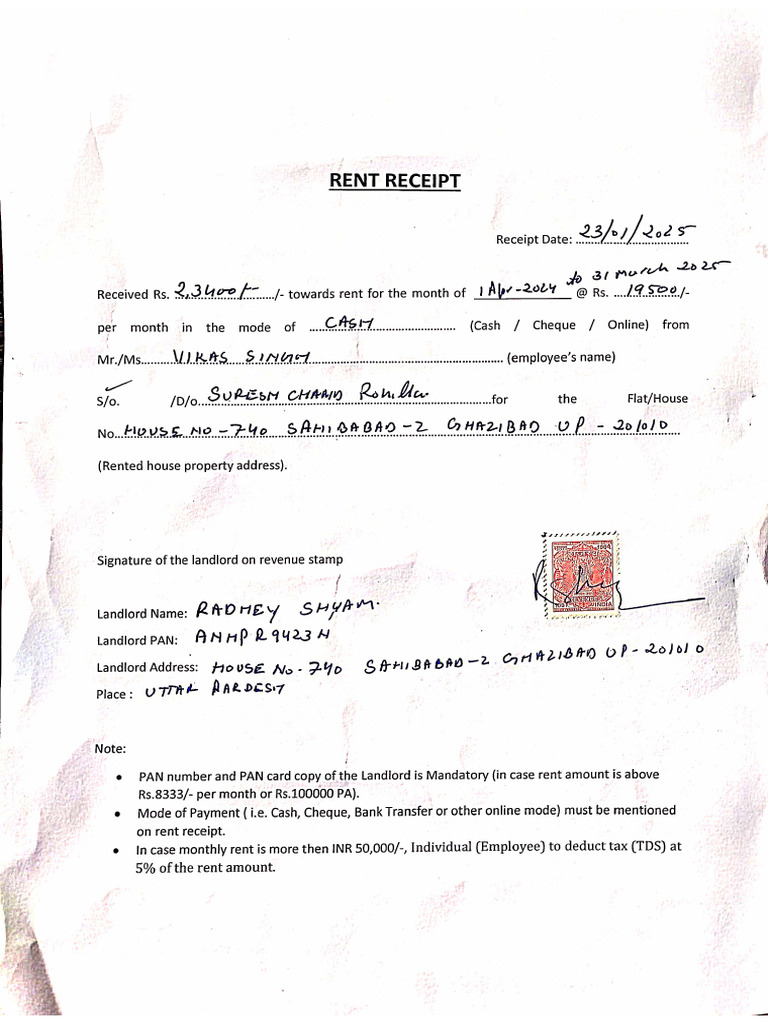 RENT RECEIPT
Receipt Date: 23/01/2025
Received Rs. 2,3400/- /- towards rent for the month of 1 Apr-2024 to 31 march 2025 @ Rs. 19500/-
per month in the mode of CASH (Cash / Cheque / Online) from
Mr./Ms. VIKAS SINGH (employee's name)
S/o. /D/o. SURESH CHAND Rohilla for the Flat/House
No. HOUSE NO - 740 SAHIBABAD - 2 GHAZIBAD UP - 201010
(Rented house property address).
Signature of the landlord on revenue stamp
Landlord Name: RADHEY SHYAM.
Landlord PAN: ANHPR9423H
Landlord Address: HOUSE No - 740 SAHIBABAD - 2 GHAZIBAD UP - 201010
Place : UTTAR PARDESH
Note:
• PAN number and PAN card copy of the Landlord is Mandatory (in case rent amount is above
Rs.8333/- per month or Rs.100000 PA).
• Mode of Payment ( i.e. Cash, Cheque, Bank Transfer or other online mode) must be mentioned
on rent receipt.
• In case monthly rent is more then INR 50,000/-, Individual (Employee) to deduct tax (TDS) at
5% of the rent amount.